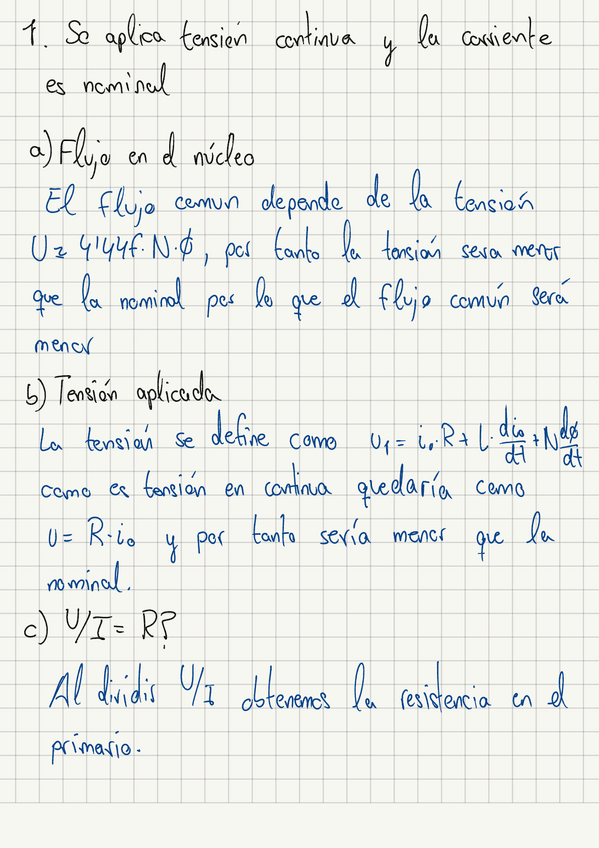 1. Se aplica tensión continua y la corriente
es nominal
a) Flujo en el núcleo
El flujo comun depende de la tensión
U = 4'44f·N·ϕ, por tanto la tensión sera menor
que la nominal por lo que el flujo común será
menor
b) Tensión aplicada
La tensión se define como u₁ = i₀·R + L·di₀/dt + N dϕ/dt
como es tensión en continua quedaría como
U = R·i₀ y por tanto sería menor que la
nominal.
c) U/I = R?
Al dividir U/I obtenemos la resistencia en el
primario.